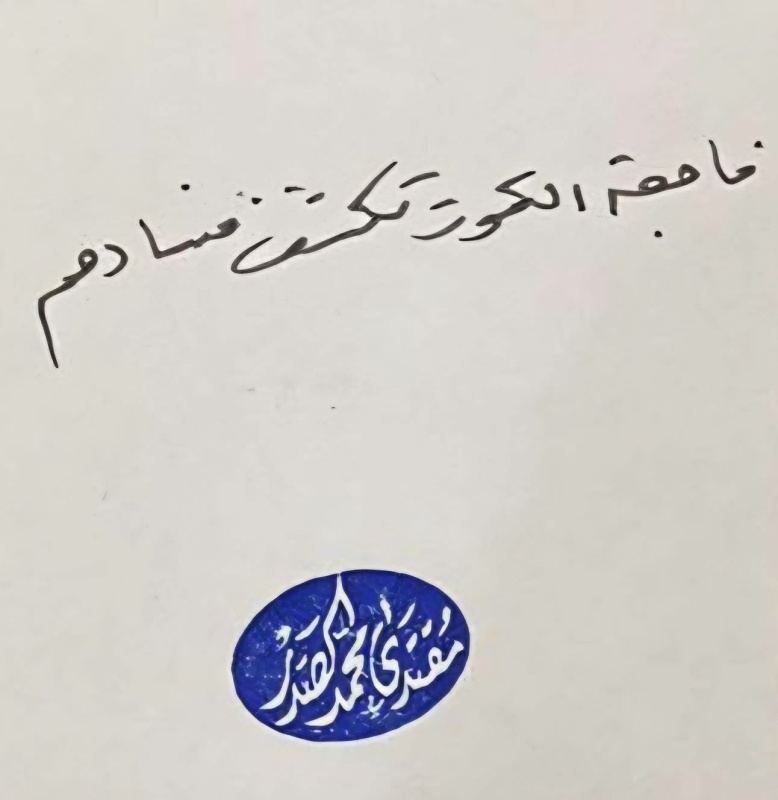 فاجعة الكوت تكشف فسادهم
مقتدى محمد الصدر